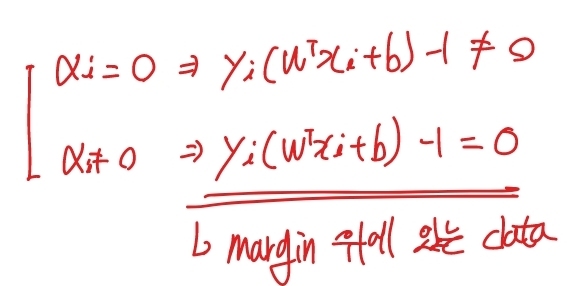 αi = 0 ⇒ yi(wᵀxi+b) -1 ≠ 0
αi ≠ 0 ⇒ yi(wᵀxi+b) -1 = 0
↳ margin 위에 있는 data